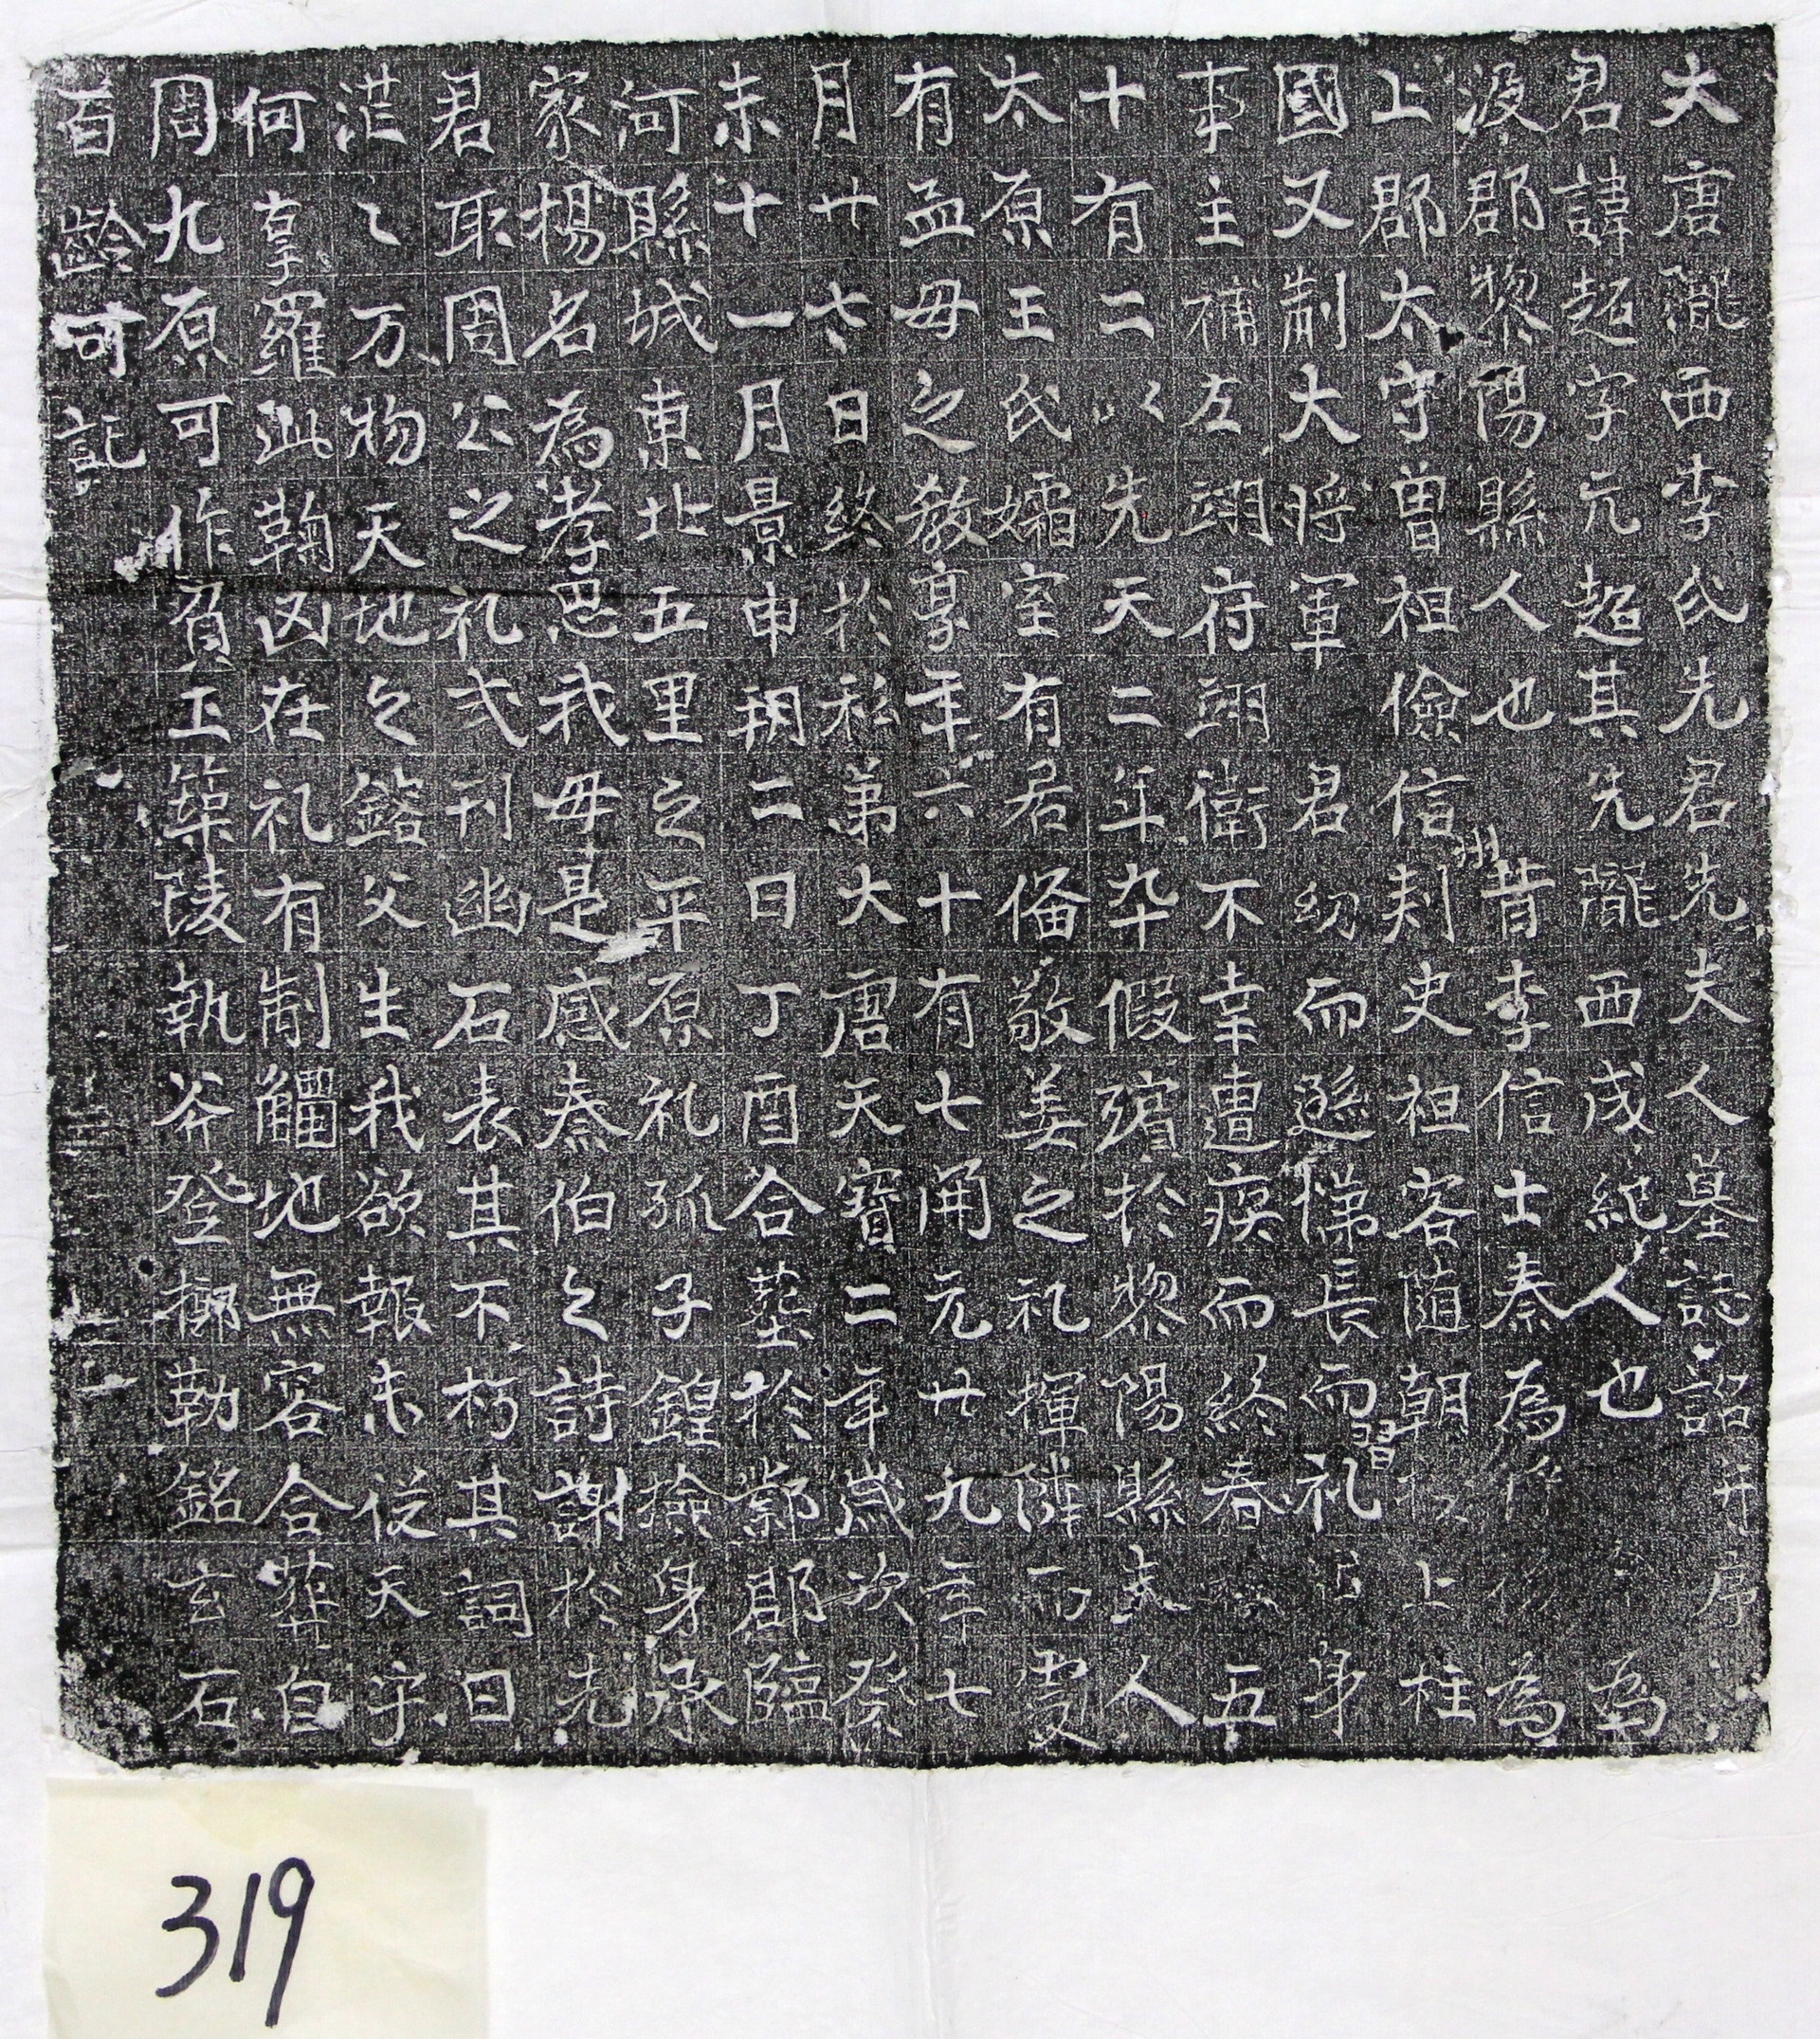 大唐隴西李氏先君先夫人墓誌銘并序
君諱超字元超其先隴西成紀人也 為
汲郡黎陽縣人也 昔李信士秦為 為
上郡太守曾祖儉信州刾史祖客随朝 上柱
國又制大将軍 君幼而遜悌長而習礼 身
事主補左翊府翊衛不幸遭疾而終春 五
十有二以先天二年九十假殯於黎陽縣 夫人
太原王氏孀室有君俻敬姜之礼撣隣而處
有孟母之教享年六十有七開元廿九年七
月廿七日終於私第大唐天寶二年歳次癸
未十一月景申朔二日丁酉合塟於鄴郡臨
河縣城東北五里之平原礼孤子鍠撿身承
家揚名為孝思我母是感奏伯之詩謝於先
君取周公之礼式刊幽石表其不朽其詞曰
茫〻万物天地之鎔父生我欲報未從天乎
何辜羅此鞠凶在礼有制觿地無容合葬自
周九原可作負土築陵執斧登梛勒銘玄石
百齡可記
319